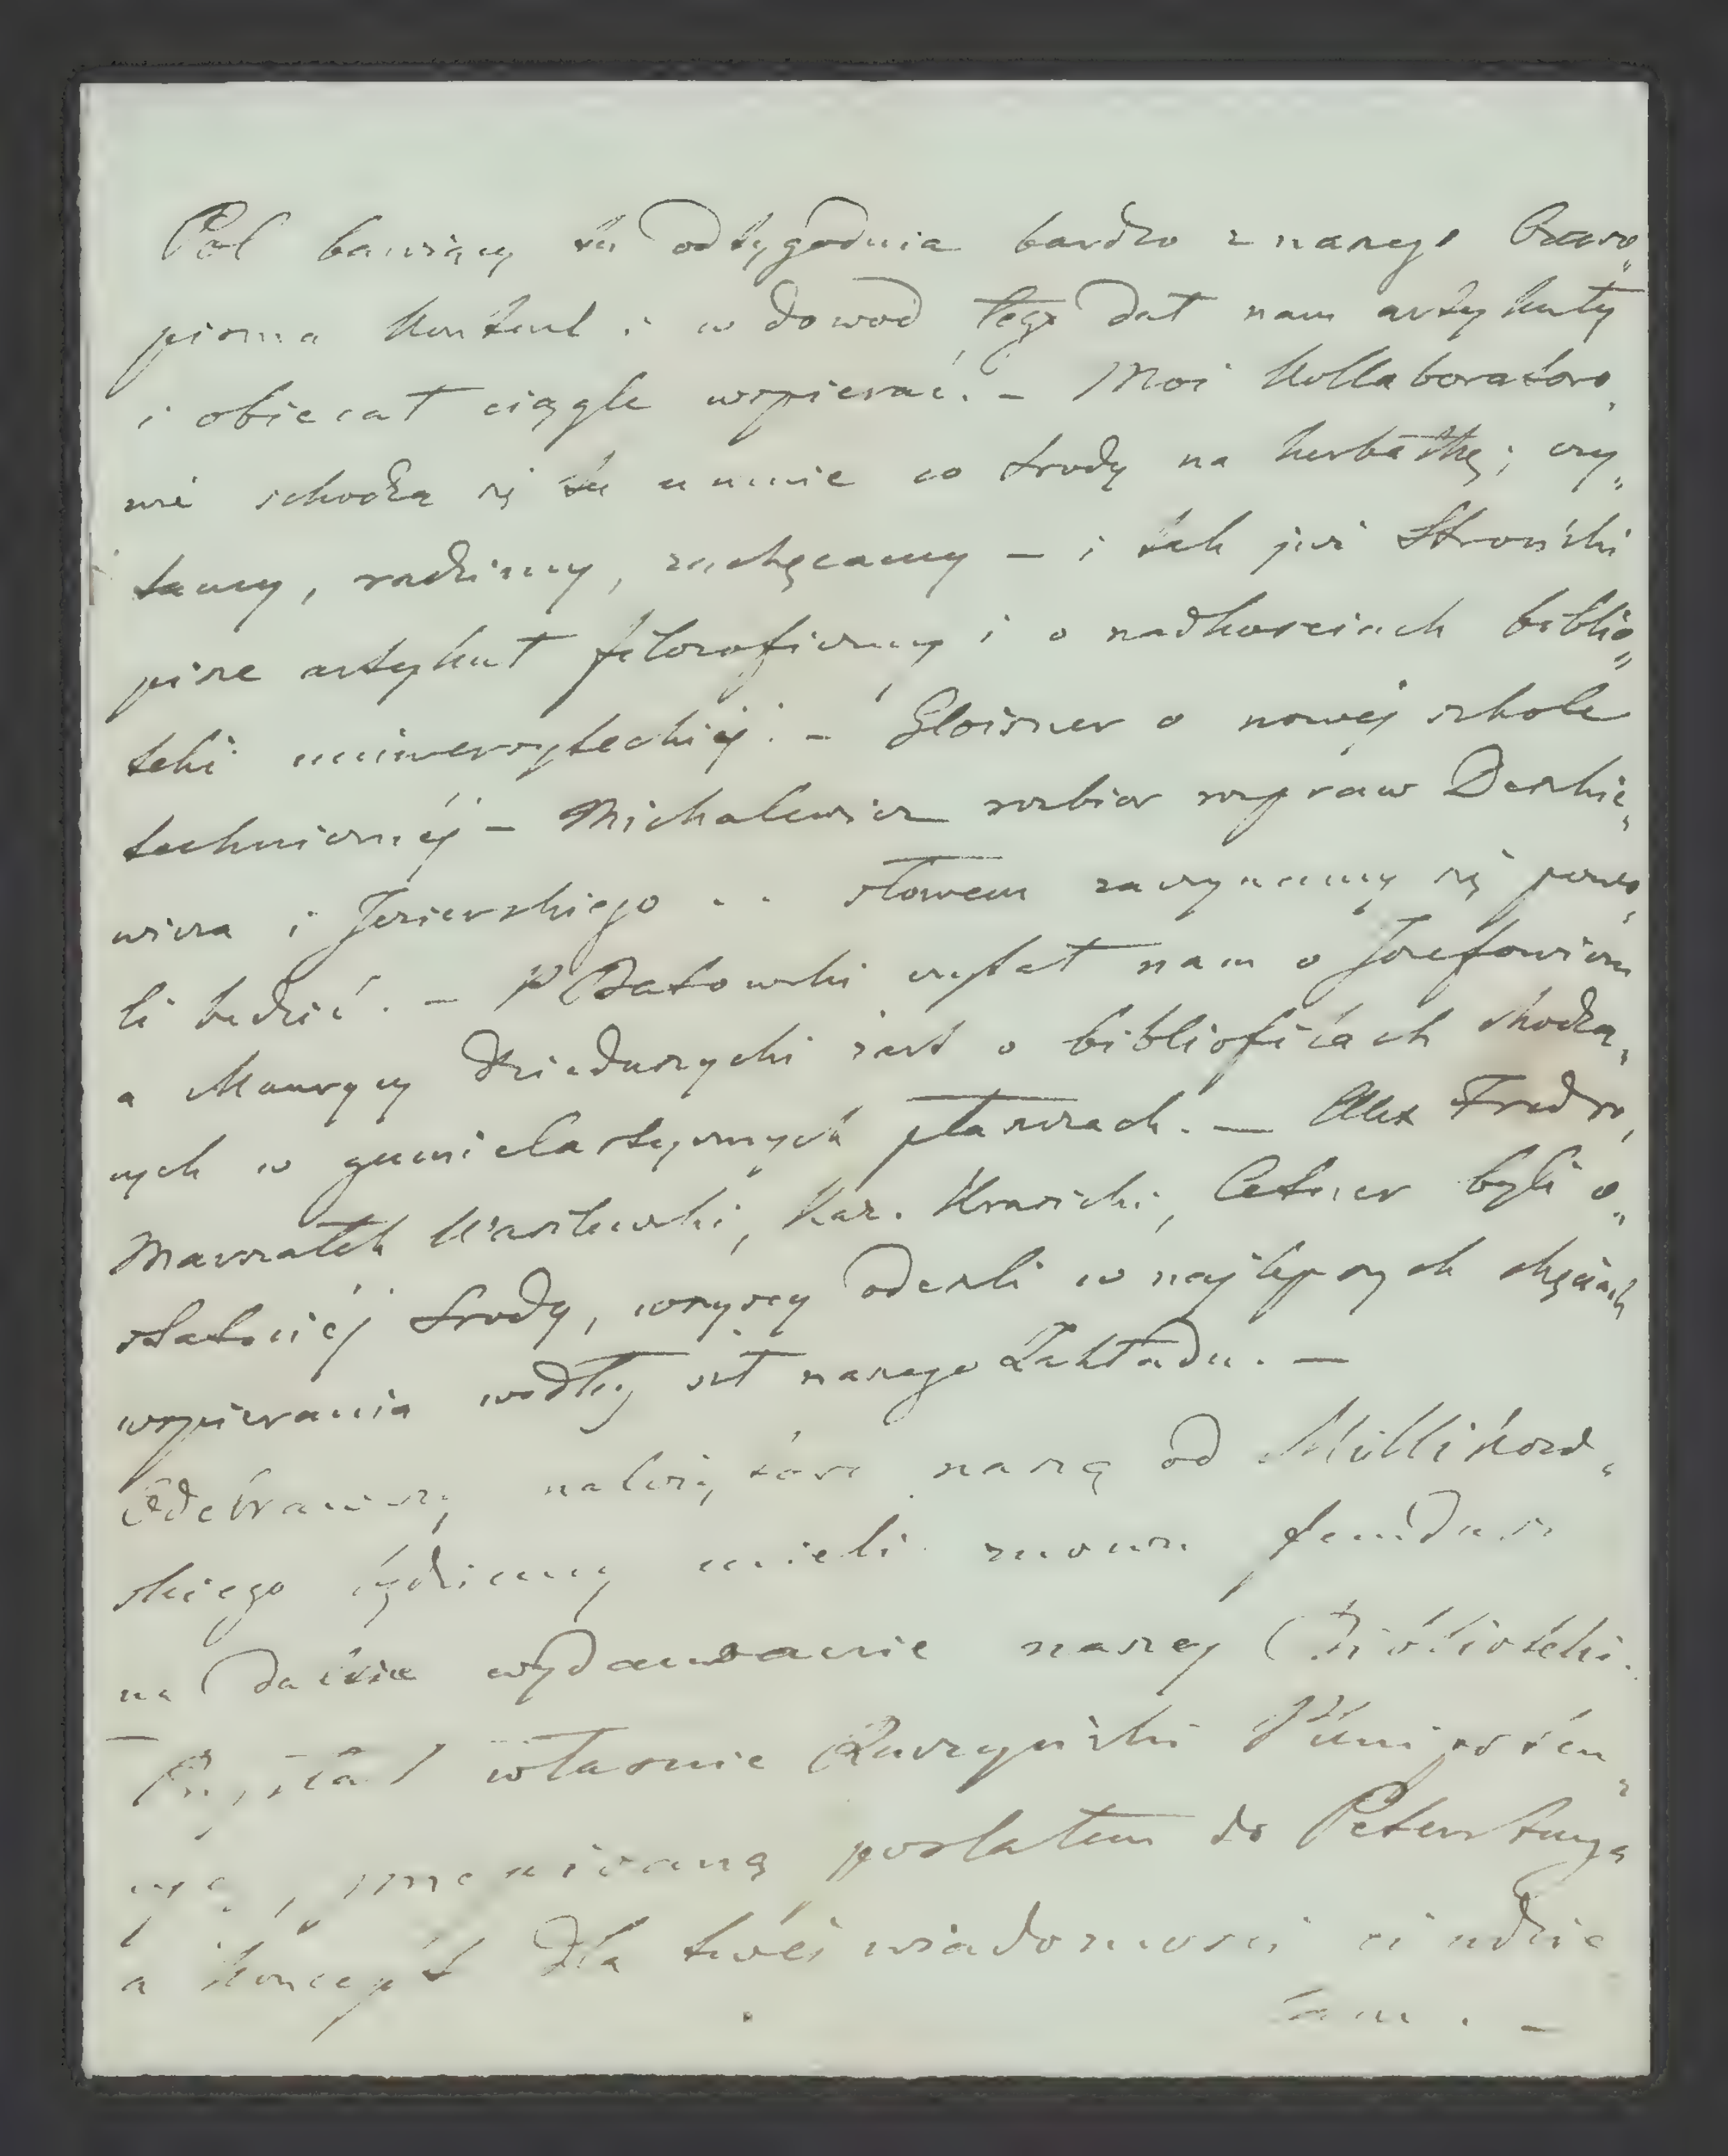 Pol bawiący tu od tygodnia bardzo z naszego Czaso„
pisma kontent i w dowod tego dał nam artykuły
i obiecał ciągle wspierać. – Moi Kollaborato„
wie schodzą się tu u mnie co środy na herbatkę; czy„
tamy, radzimy, zachęcamy – i tak już Stroński
pisze artykuł filozoficzny i o rzadkościach biblio„
teki uniwersyteckiéj. – Gloisner o nowéj szkole
technicznéj – Michalewicz rozbior rozpraw Deszkie„
wicza i Jezierskiego . . słowem zaczynamy się powo„
li budzić. – P Batowski czytał nam o Jozefowiczu
a Maurycy Dzieduszycki żart o bibliofiłach chodzą„
cych w gumielastycznych płaszczach. — Alex Fredro,
Marszałek Wasilewski, Kaz. Krasicki, Cetner byli o„
statniéj środy, wszyscy odeszli w najlepszych chęciach
wspierania wedłuj sił naszego Zakładu. —
Odebrawszy należytość naszą od Milikow„
skiego będziemy mieli znowu fundusz
na dalsze wydawanie naszej Biblioteki.
– Przysłał własnie Raczyński Plenipoten„
cyą, posłałem do Petersburga
a koncept dla twéj wiadomosci ci udzie
lam . –